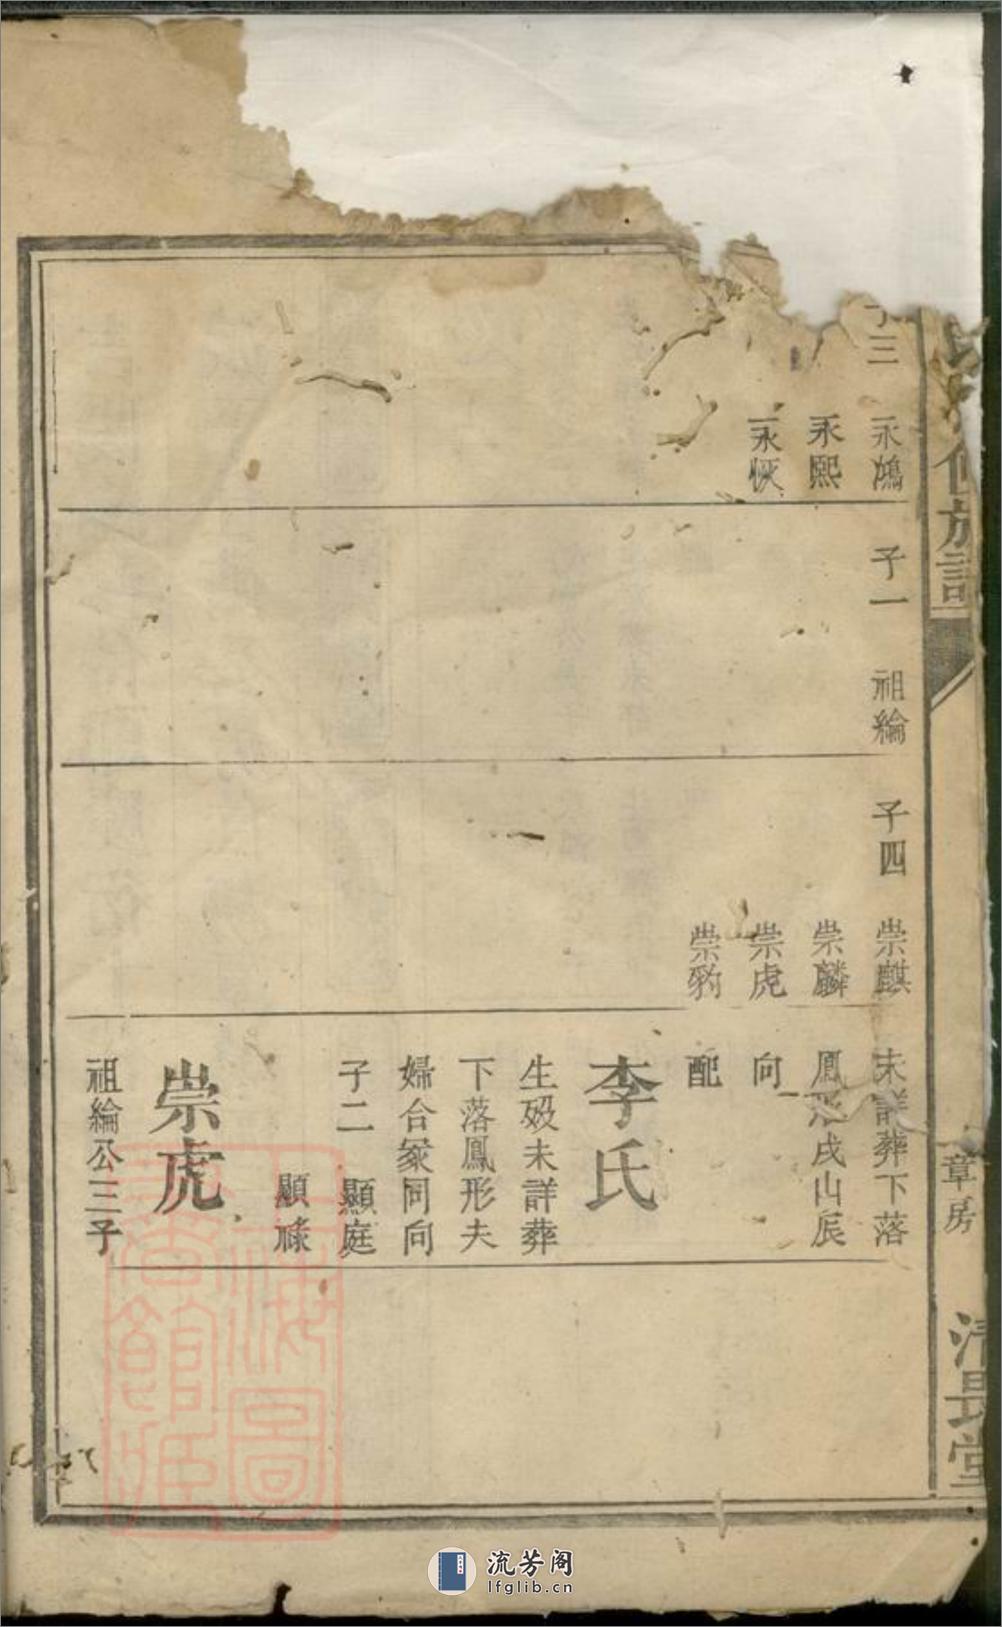 修族譜
章房
清最堂
子三
永鴻
永熙
永恢
子一
祖綸
子四
崇麒
崇麟
崇虎
崇豹
未詳葬下落
鳳形戌山辰
向
配
李氏
生殁未詳葬
下落鳳形夫
婦合冢同向
子二 顯庭
顯祿
崇虎
祖綸公三子
上海圖書館藏
流芳阁
lfglib.cn